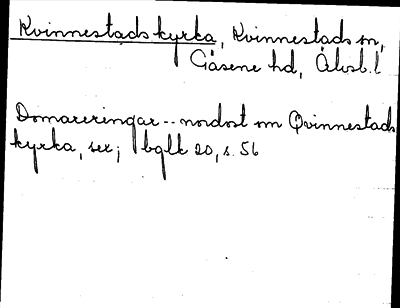 Kvinnestads kyrka, Kvinnestads sn,
Gäsene hd, Älvsb. l
Domareringar -- nordost om Qvinnestads
kyrka, sex; bglk 20, s. 56